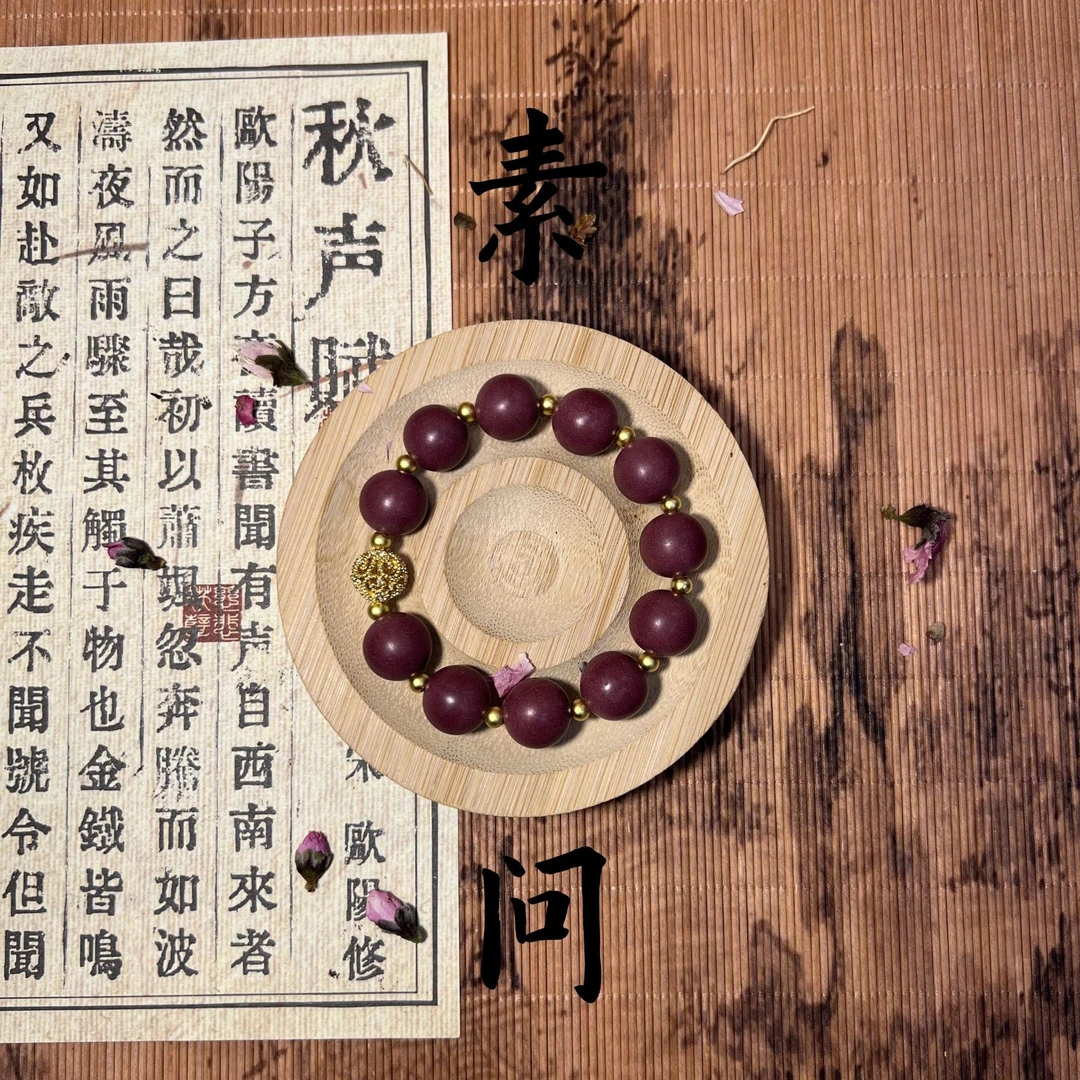 素问
秋声赋
歐陽修
歐陽子方夜讀書聞有声自西南來者
然而之曰哉初以蕭颯忽奔騰而如波
濤夜風雨驟至其觸于物也金鐵皆鳴
又如赴敵之兵枚疾走不聞號令但聞